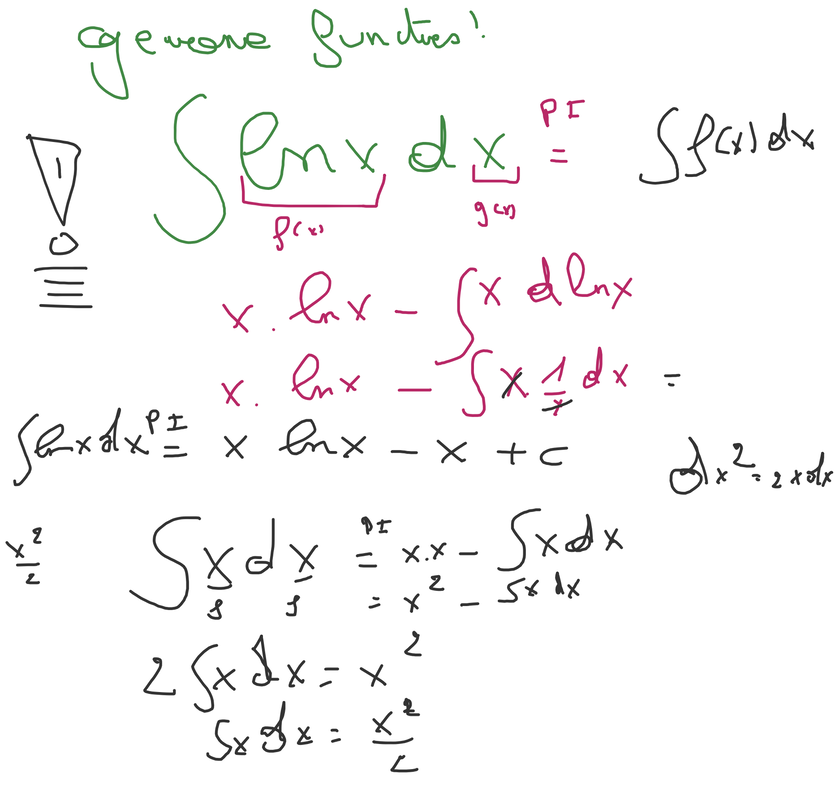 gewone functies!
∫ ln x d x = PI ∫ f(x) dx
f(x) g(x)
x . ln x - ∫ x d ln x
x . ln x - ∫ x . 1/x dx =
∫ ln x dx = PI x ln x - x + c
d x² = 2 x dx
x²/2 ∫ x d x = PI x.x - ∫ x dx
= x² - ∫ x dx
2 ∫ x dx = x²
∫ x dx = x²/2